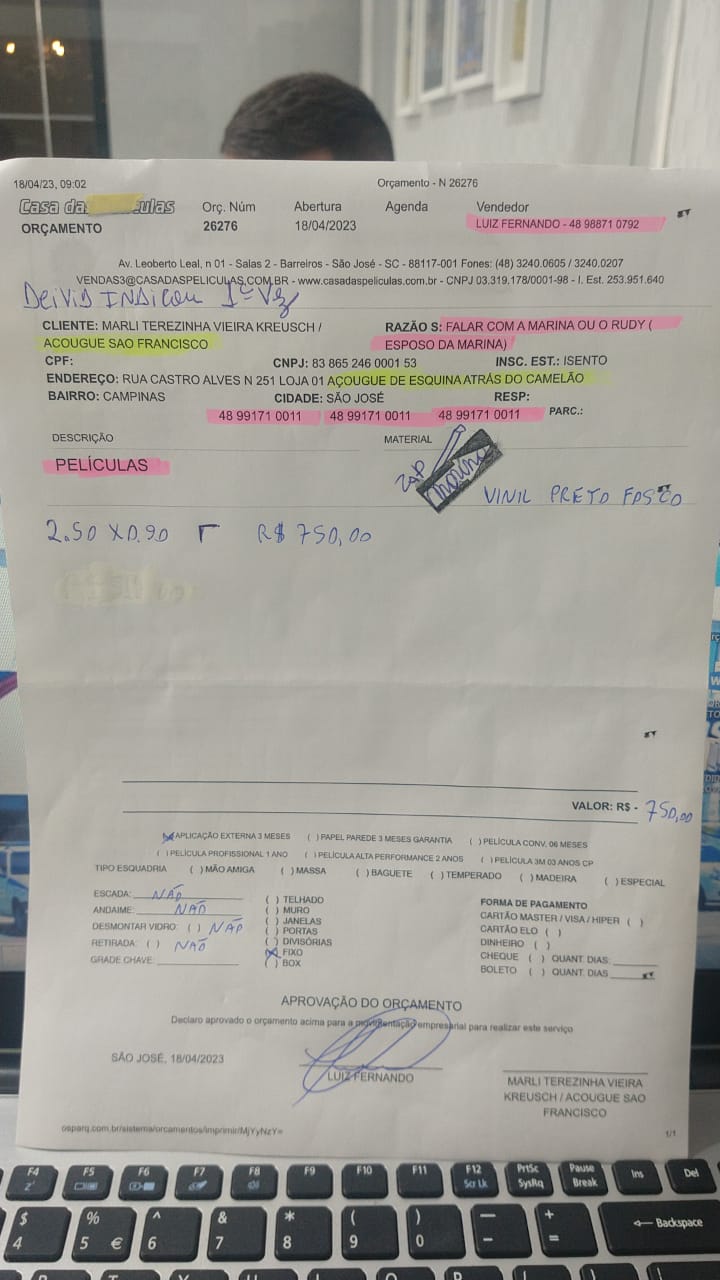 18/04/23, 09:02 Orçamento - N 26276
Casa das Películas Orç. Núm Abertura Agenda Vendedor
ORÇAMENTO 26276 18/04/2023 LUIZ FERNANDO - 48 98871 0792
Av. Leoberto Leal, n 01 - Salas 2 - Barreiros - São José - SC - 88117-001 Fones: (48) 3240.0605 / 3240.0207
VENDAS3@CASADASPELICULAS.COM.BR - www.casadaspeliculas.com.br - CNPJ 03.319.178/0001-98 - I. Est. 253.951.640
DEIVID INDICOU 1ª VEZ
CLIENTE: MARLI TEREZINHA VIEIRA KREUSCH / RAZÃO S: FALAR COM A MARINA OU O RUDY (
ACOUGUE SAO FRANCISCO ESPOSO DA MARINA)
CPF: CNPJ: 83 865 246 0001 53 INSC. EST.: ISENTO
ENDEREÇO: RUA CASTRO ALVES N 251 LOJA 01 AÇOUGUE DE ESQUINA ATRÁS DO CAMELÃO
BAIRRO: CAMPINAS CIDADE: SÃO JOSÉ RESP:
48 99171 0011 48 99171 0011 48 99171 0011 PARC.:
DESCRIÇÃO MATERIAL
PELÍCULAS
ZAP MARINA
VINIL PRETO FOSCO
2.50 X 0.90 R$ 750,00
VALOR: R$ - 750,00
APLICAÇÃO EXTERNA 3 MESES ( ) PAPEL PAREDE 3 MESES GARANTIA ( ) PELÍCULA CONV. 06 MESES
( ) PELÍCULA PROFISSIONAL 1 ANO ( ) PELÍCULA ALTA PERFORMANCE 2 ANOS ( ) PELÍCULA 3M 03 ANOS CP
TIPO ESQUADRIA ( ) MÃO AMIGA ( ) MASSA ( ) BAGUETE ( ) TEMPERADO ( ) MADEIRA ( ) ESPECIAL
ESCADA: NÃO
ANDAIME: NÃO
DESMONTAR VIDRO: ( ) NÃO
RETIRADA: ( ) NÃO
GRADE CHAVE:
( ) TELHADO
( ) MURO
( ) JANELAS
( ) PORTAS
( ) DIVISÓRIAS
(X) FIXO
( ) BOX
FORMA DE PAGAMENTO
CARTÃO MASTER / VISA / HIPER ( )
CARTÃO ELO ( )
DINHEIRO ( )
CHEQUE ( ) QUANT. DIAS:
BOLETO ( ) QUANT. DIAS
APROVAÇÃO DO ORÇAMENTO
Declaro aprovado o orçamento acima para a movimentação empresarial para realizar este serviço
SÃO JOSÉ, 18/04/2023
LUIZ FERNANDO
MARLI TEREZINHA VIEIRA
KREUSCH / ACOUGUE SAO
FRANCISCO
osparq.com.br/sistema/orcamentos/imprimir/MjYyNzY= 1/1
F4 F5 F6 F7 F8 F9 F10 F11 F12 PrtSc Pause Ins Del
Scr Lk SysRq Break
$ % ^ & * ( ) — +
4 5 € 6 7 8 9 0 - = Backspace